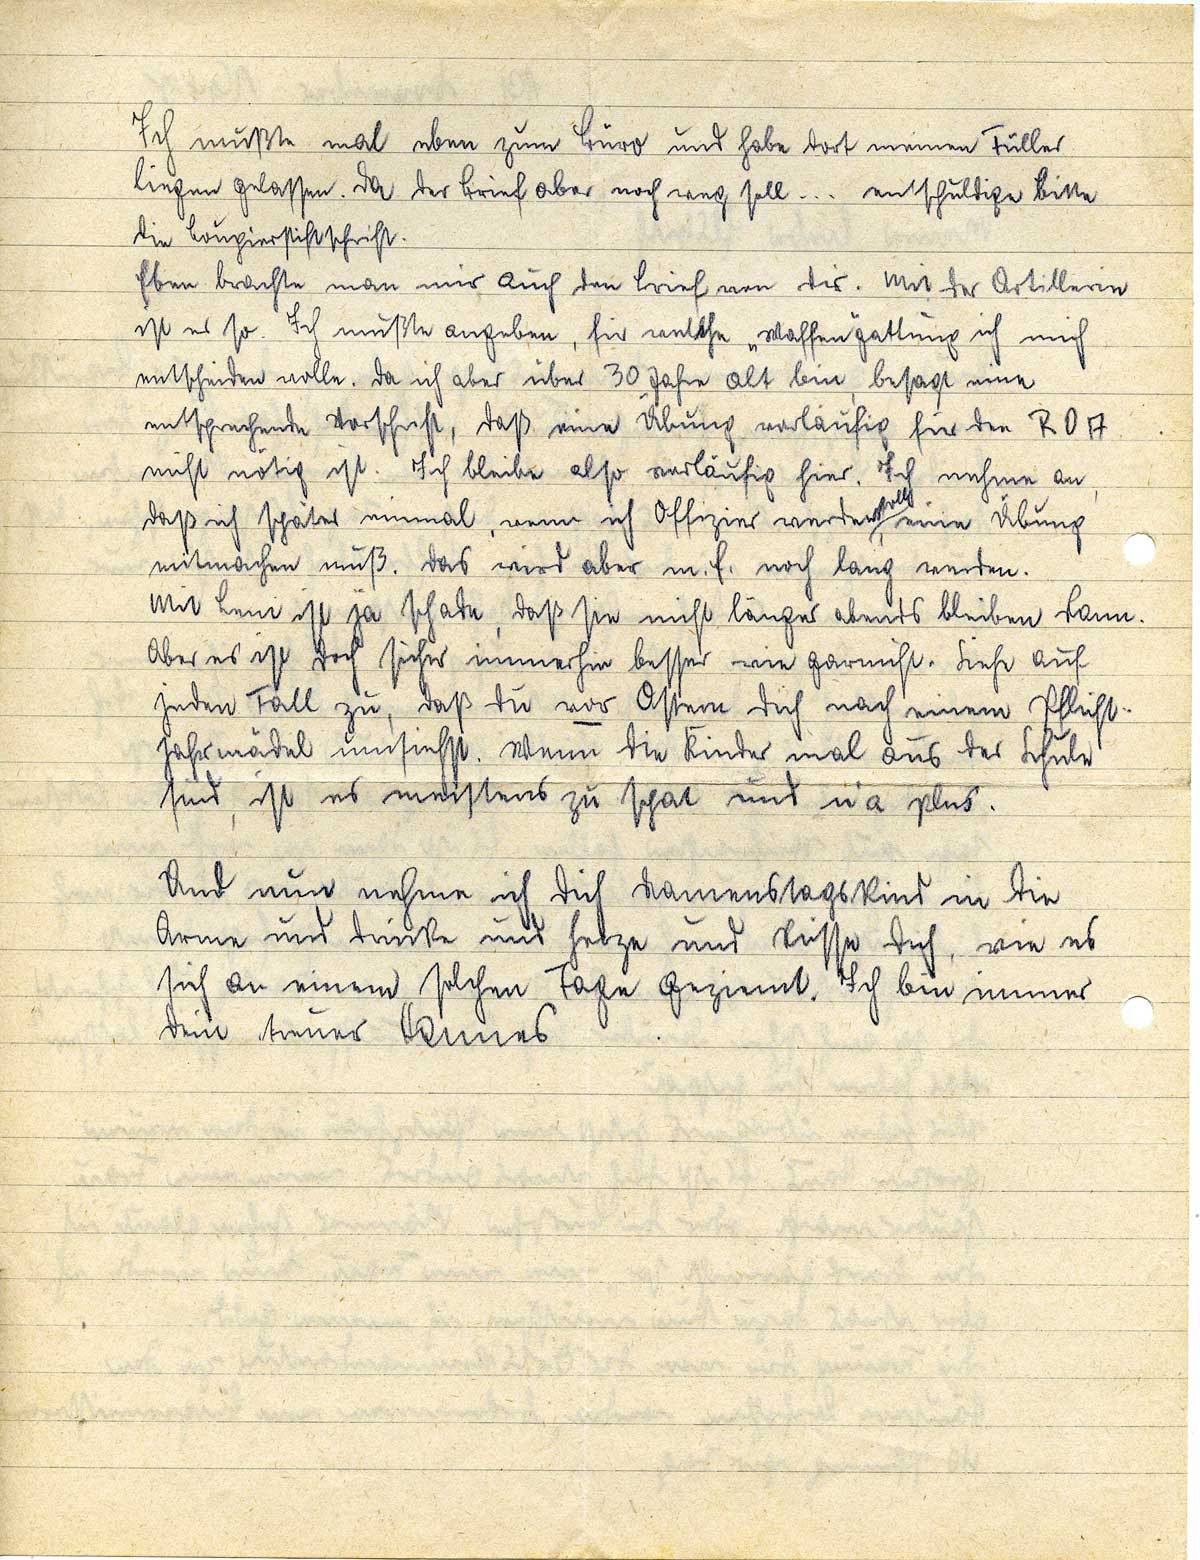 Ich mußte mal eben zum Büro und habe dort meinen Füller
liegen gelassen. Da der Brief aber noch weg soll ... entschuldige bitte
die Coupierstiftschrift.
Eben brachte man mir auch den Brief von dir. Mit der Artillerie
ist es so. Ich mußte angeben, für welche „Waffengattung ich mich
entscheiden wolle. Da ich aber über 30 Jahre alt bin, besagt eine
entsprechende Vorschrift, daß eine Übung vorläufig für den ROA
nicht nötig ist. Ich bleibe also vorläufig hier. Ich nehme an,
daß ich später einmal, wenn ich Offizier werden soll, eine Übung
mitmachen muß. Das wird aber m. E. noch lang werden.
Mit Leni ist ja schade, daß sie nicht länger abends bleiben kann.
Aber es ist doch sicher immerhin besser wie garnicht. Siehe auf
jeden Fall zu, daß du vor Ostern dich nach einem Pflicht-
jahrmädel umsiehst. Wenn die Kinder mal aus der Schule
sind, ist es meistens zu spät und n'a plus.
Und nun nehme ich dich Namenstagskind in die
Arme und drücke und herze und küsse dich, wie es
sich an einem solchen Tage geziemt. Ich bin immer
dein treuer Hannes